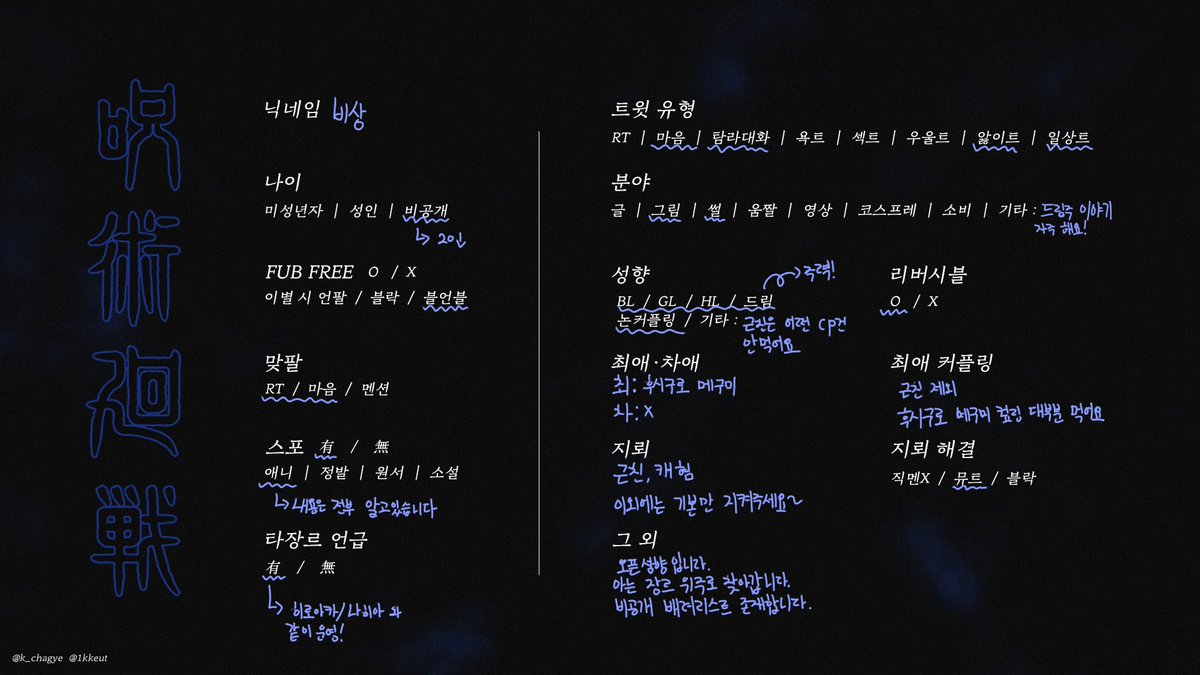 呪
術
廻
戦
닉네임 비상
나이
미성년자 | 성인 | 비공개
20↓
FUB FREE O / X
이별 시 언팔 / 블락 / 블언블
맞팔
RT / 마음 / 멘션
스포 有 / 無
애니 | 정발 | 원서 | 소설
내용은 전부 알고있습니다
타장르 언급
有 / 無
히로아카/나히아 와
같이 운영!
트윗 유형
RT | 마음 | 탐라대화 | 욕트 | 섹트 | 우울트 | 앓이트 | 일상트
분야
글 | 그림 | 썰 | 움짤 | 영상 | 코스프레 | 소비 | 기타 : 드림주 이야기
자주 해요!
성향
주력!
BL / GL / HL / 드림
논커플링 / 기타 : 근친은 어떤 CP건
안먹어요
리버시블
O / X
최애·차애
최: 후시구로 메구미
차: X
최애 커플링
근친 제외
후시구로 메구미 컾링 대부분 먹어요
지뢰
근친, 캐혐
이외에는 기본만 지켜주세요~
지뢰 해결
직멘X / 뮤트 / 블락
그 외
오픈성향 입니다.
아는 장르 위주로 찾아갑니다.
비공개 배려리스트 존재합니다.
@k_chagye @1kkeut